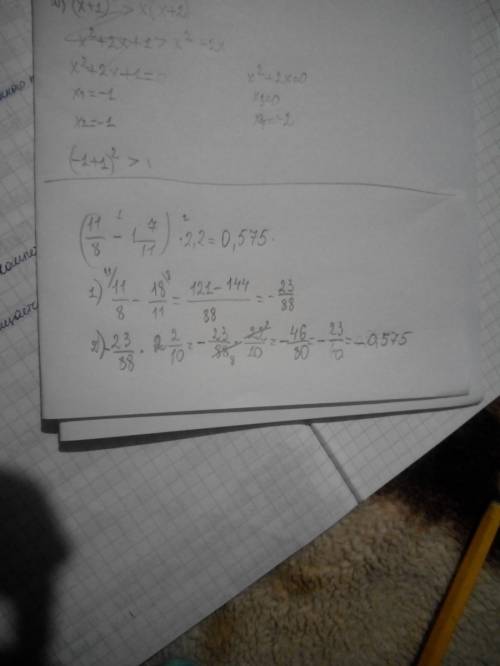 (x+1)² > x(x+2)
x²+2x+1 > x²+2x
x²+2x+1=0 x²+2x=0
x₁=-1 x₁=0
x₂=-1 x₂=-2
(-1+1)² >
(11/8 - 1 7/11) · 2,2 = 0,575.
1) 11/8 - 18/11 = 121-144/88 = -23/88
2) -23/88 · 2 2/10 = -23/88 · 22/10 = -46/80 - 23/10 = -0,575